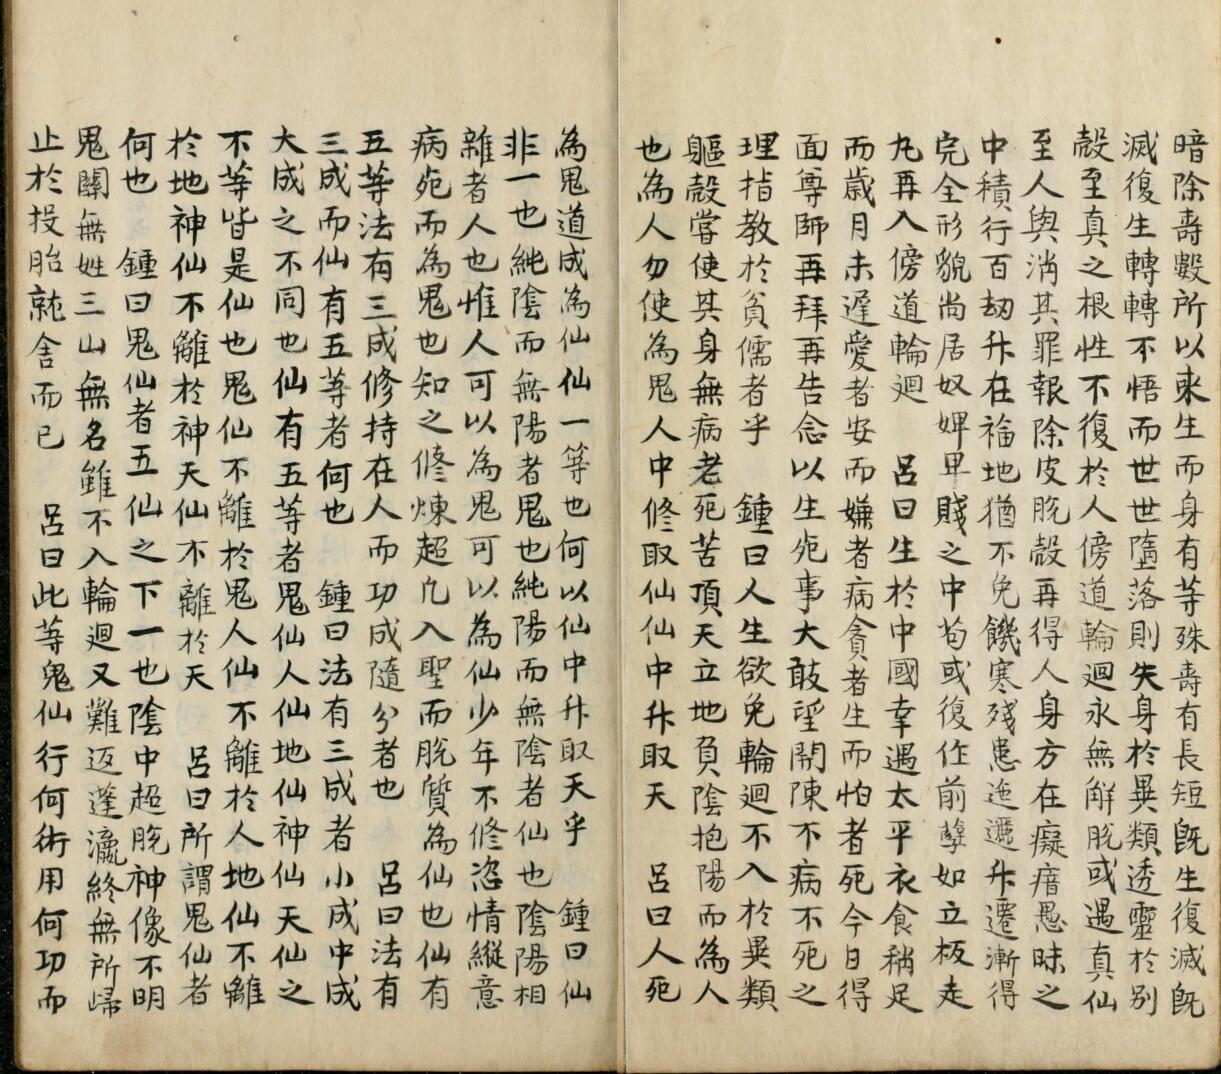 暗除壽數所以來生而身有等殊壽有長短旣生復滅旣
滅復生轉轉不悟而世世墮落則失身於異類透靈於別
殼至真之根性不復於人傍道輪迴永無解脫或遇真仙
至人與消其罪報除皮脫殼再得人身方在癡瘖愚昧之
中積行百劫升在福地猶不免饑寒殘患迤邐升遷漸得
完全形貌尚居奴婢卑賤之中苟或復作前孽如立板走
丸再入傍道輪迴　呂曰生於中國幸遇太平衣食稍足
而歲月未遲愛者安而嫌者病貪者生而怕者死今日得
面尊師再拜再告念以生死事大敢望開陳不病不死之
理指教於貧儒者乎　鍾曰人生欲免輪迴不入於異類
軀殼嘗使其身無病老死苦頂天立地負陰抱陽而為人
也為人勿使為鬼人中修取仙仙中升取天　呂曰人死
為鬼道成為仙仙一等也何以仙中升取天乎　鍾曰仙
非一也純陰而無陽者鬼也純陽而無陰者仙也陰陽相
雜者人也惟人可以為鬼可以為仙少年不修恣情縱意
病死而為鬼也知之修煉超凡入聖而脫質為仙也仙有
五等法有三成修持在人而功成隨分者也　呂曰法有
三成而仙有五等者何也　鍾曰法有三成者小成中成
大成之不同也仙有五等者鬼仙人仙地仙神仙天仙之
不等皆是仙也鬼仙不離於鬼人仙不離於人地仙不離
於地神仙不離於神天仙不離於天　呂曰所謂鬼仙者
何也　鍾曰鬼仙者五仙之下一也陰中超脫神像不明
鬼關無姓三山無名雖不入輪迴又難返蓬瀛終無所歸
止於投胎就舍而已　呂曰此等鬼仙行何術用何功而